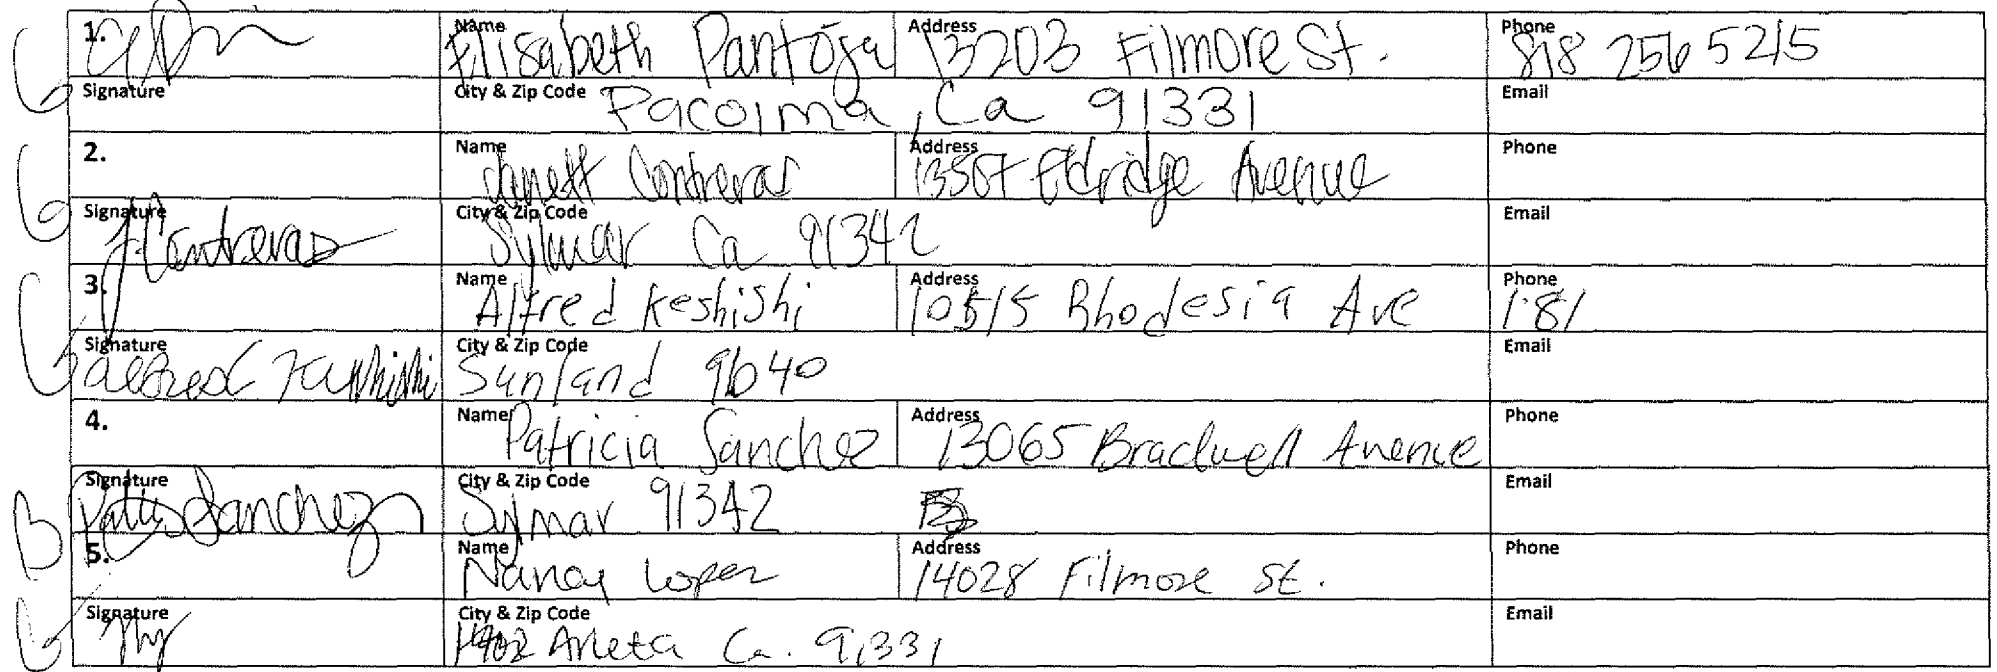 1. Name Elisabeth Pantoja Address 13203 Filmore St. Phone 818 256 5215
Signature City & Zip Code Pacoima, Ca 91331 Email
2. Name Janett Contreras Address 13507 Eldridge Avenue Phone
Signature JContreras City & Zip Code Sylmar Ca 91342 Email
3. Name Alfred Keshishi Address Rhodesia Ave Phone 1·81
Signature City & Zip Code Sunland Email
4. Name Patricia Sanchez Address 13065 Bradwell Avenue Phone
Signature Patty Sanchez City & Zip Code Sylmar 91342 Email
5. Name Nancy Lopez Address 14028 Filmore St. Phone
Signature City & Zip Code Arleta Ca. 91331 Email